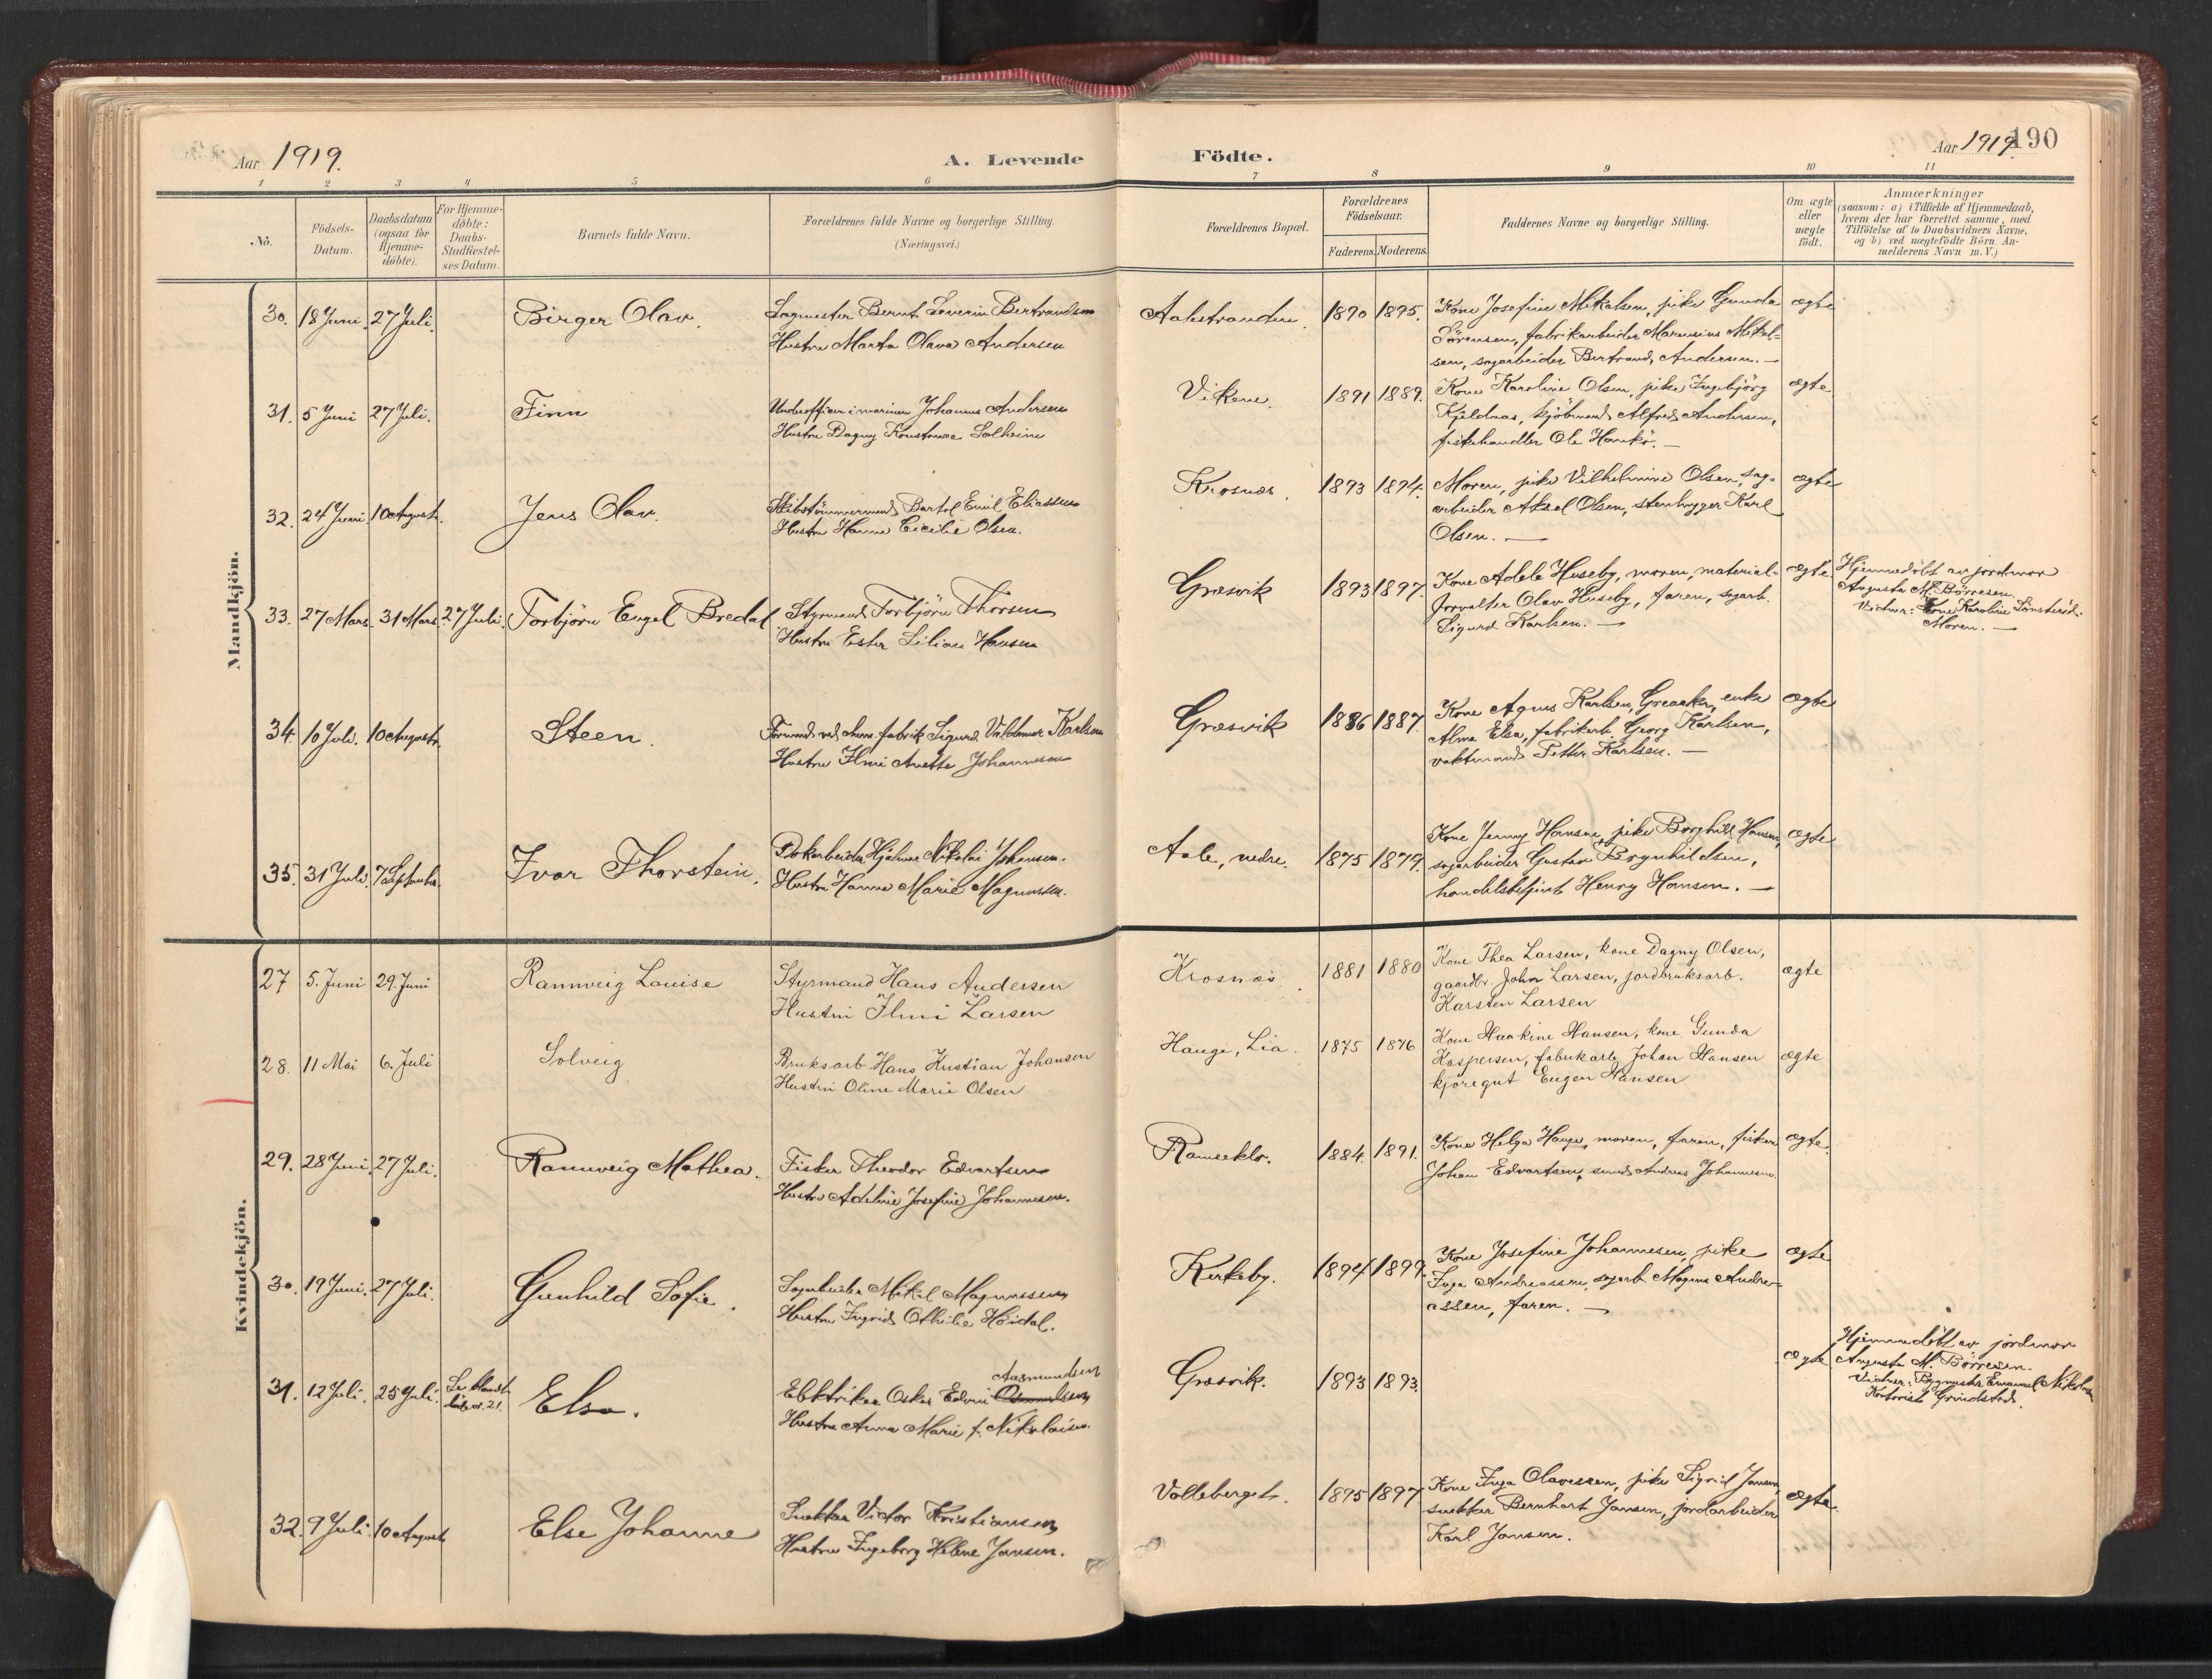 Aar 1919.
A. Levende
Födte.
Aar 1919.
190
1 2 3 4 5 6 7 8 9 10 11
No.
Födsels-
Datum.
Daabsdatum
(ogsaa for
Hjemme-
döbte).
For Hjemme-
döbte:
Daabs-
Stadfæstel-
ses Datum.
Barnets fulde Navn.
Forældrenes fulde Navne og borgerlige Stilling.
(Næringsvei.)
Forældrenes Bopæl.
Forældrenes
Födselsaar.
Faderens. Moderens.
Faddernes Navne og borgerlige Stilling.
Om ægte
eller
uægte
födt.
Anmærkninger
(saasom: a) i Tilfælde af Hjemmedaab,
hvem der har forrettet samme, med
Tilföielse af to Daabsvidners Navne,
og b) ved uægtefödte Börn An-
melderens Navn m. V.)
Mandkjön.
30. 18 Juni. 27 Juli. Birger Olav.
Sagmester Bernt Severin Bertrandsen
Hustru Marta Olava Andersen
Aalestranden. 1890 1895.
Kone Josefine Mikalsen, pike Gunda
Sörensen, fabrikarbeider Marensius Mikal-
sen, sagarbeider Bertrand Andersen. —
ægte
31. 5 Juni 27 Juli. Finn
Underofficer i marinen Johannes Andersen
Hustru Dagny Konstance Solheim
Vikene. 1891 1889.
Kone Karoline Olsen, pike Ingebjörg
Kjeldnas, kjöbmand Alfred Andersen,
fiskehandler Ole Hankö. —
ægte
32. 24 Juni 10 August. Jens Olav.
Skibstömmermand Bartol Emil Eliassen
Hustru Hanna Cicilie Olsen.
Krosnæs. 1893 1894.
Moren, pike Vilhelmine Olsen, sag-
arbeider Aksel Olsen, stenhugger Karl
Olsen. —
ægte
33. 27 Mars. 31 Mars. 27 Juli. Torbjörn Engel Bredal
Styrmand Torbjörn Thorsen
Hustru Ester Lilian Hansen
Græsvik 1893 1897.
Kone Adele Huseby, moren, material-
forvalter Olav Huseby, faren, sagarb.
Sigurd Karlsen. —
ægte.
Hjemmedöbt av jordmor
Augusta M. Börresen.
Vidner: Kone Karoline Lönsteröd.
Moren. —
34. 10 Juli. 10 August. Steen.
Formand ved chem. fabrik Sigurd Valdemar Karlsen
Hustru Elmi Anette Johannesen
Græsvik 1886 1887.
Kone Agnes Karlsen, Greaaker, enke
Alma Elsa, fabrikarb. Georg Karlsen,
vaktmand Petter Karlsen. —
ægte
35. 31 Juli. 7 September. Ivar Thorstein.
Dokarbeider Hjalmar Nikolai Johansen.
Hustru Hanna Marie Magnussen.
Aale, nedre. 1875 1879.
Kone Jenny Hansen, pike Borghild Hansen,
sagarbeider Gustav Brynhildsen,
handelsbetjent Henry Hansen. —
ægte
Kvindekjön.
27 5. Juni 29. Juni Rannveig Louise
Styrmand Hans Andersen
Hustru Elmi Larsen
Krosnæs. 1881 1880
Kone Thea Larsen, kone Dagny Olsen,
gaardbr. John Larsen, jordbruksarb.
Karsten Larsen
ægte
28. 11 Mai 6. Juli Solveig
Bruksarb. Hans Kristian Johansen
Hustru Oline Marie Olsen
Hauge, Lia. 1875 1876
Kone Haakine Hansen, kone Gunda
Kaspersen, fabrikarb. Johan Hansen
kjöregut Eugen Hansen
ægte
29. 28 Juni. 27 Juli. Rannveig Mathea.
Fisker Theodor Edvartsen
Hustru Adeline Josefine Johannesen.
Ramseklo. 1884 1891.
Kone Helga Hauge, moren, faren, fisker
Johan Edvartsen, smed Andreas Johannesen.
ægte.
30. 19 Juni. 27 Juli. Gunhild Sofie.
Sagarbeider Mikal Magnussen
Hustru Ingrid Othilie Höidal.
Kirkeby. 1894 1899.
Kone Josefine Johannesen, pike
Inga Andreassen, sagarb. Magnus Andre-
assen, faren. —
ægte
31. 12 Juli. 25 Juli. Else.
Aasmundsen
Elektriker Oskar Edvin
Hustru Anna Marie f. Nikolaisen.
Græsvik. 1893 1893.
ægte
Hjemmedöbt av jordmor
Augusta M. Börresen.
Vidner: Bygmester Emanuel Nikolaisen
Kontorist Grindstad.
32. 9 Juli. 10 August. Else Johanne
Snekker Victor Kristiansen
Hustru Ingeborg Helene Jansen.
Valleberget. 1895 1897
Kone Inga Olavessen, pike Sigrid Jansen,
snekker Bernhart Jansen, jordarbeider
Karl Jansen.
ægte.